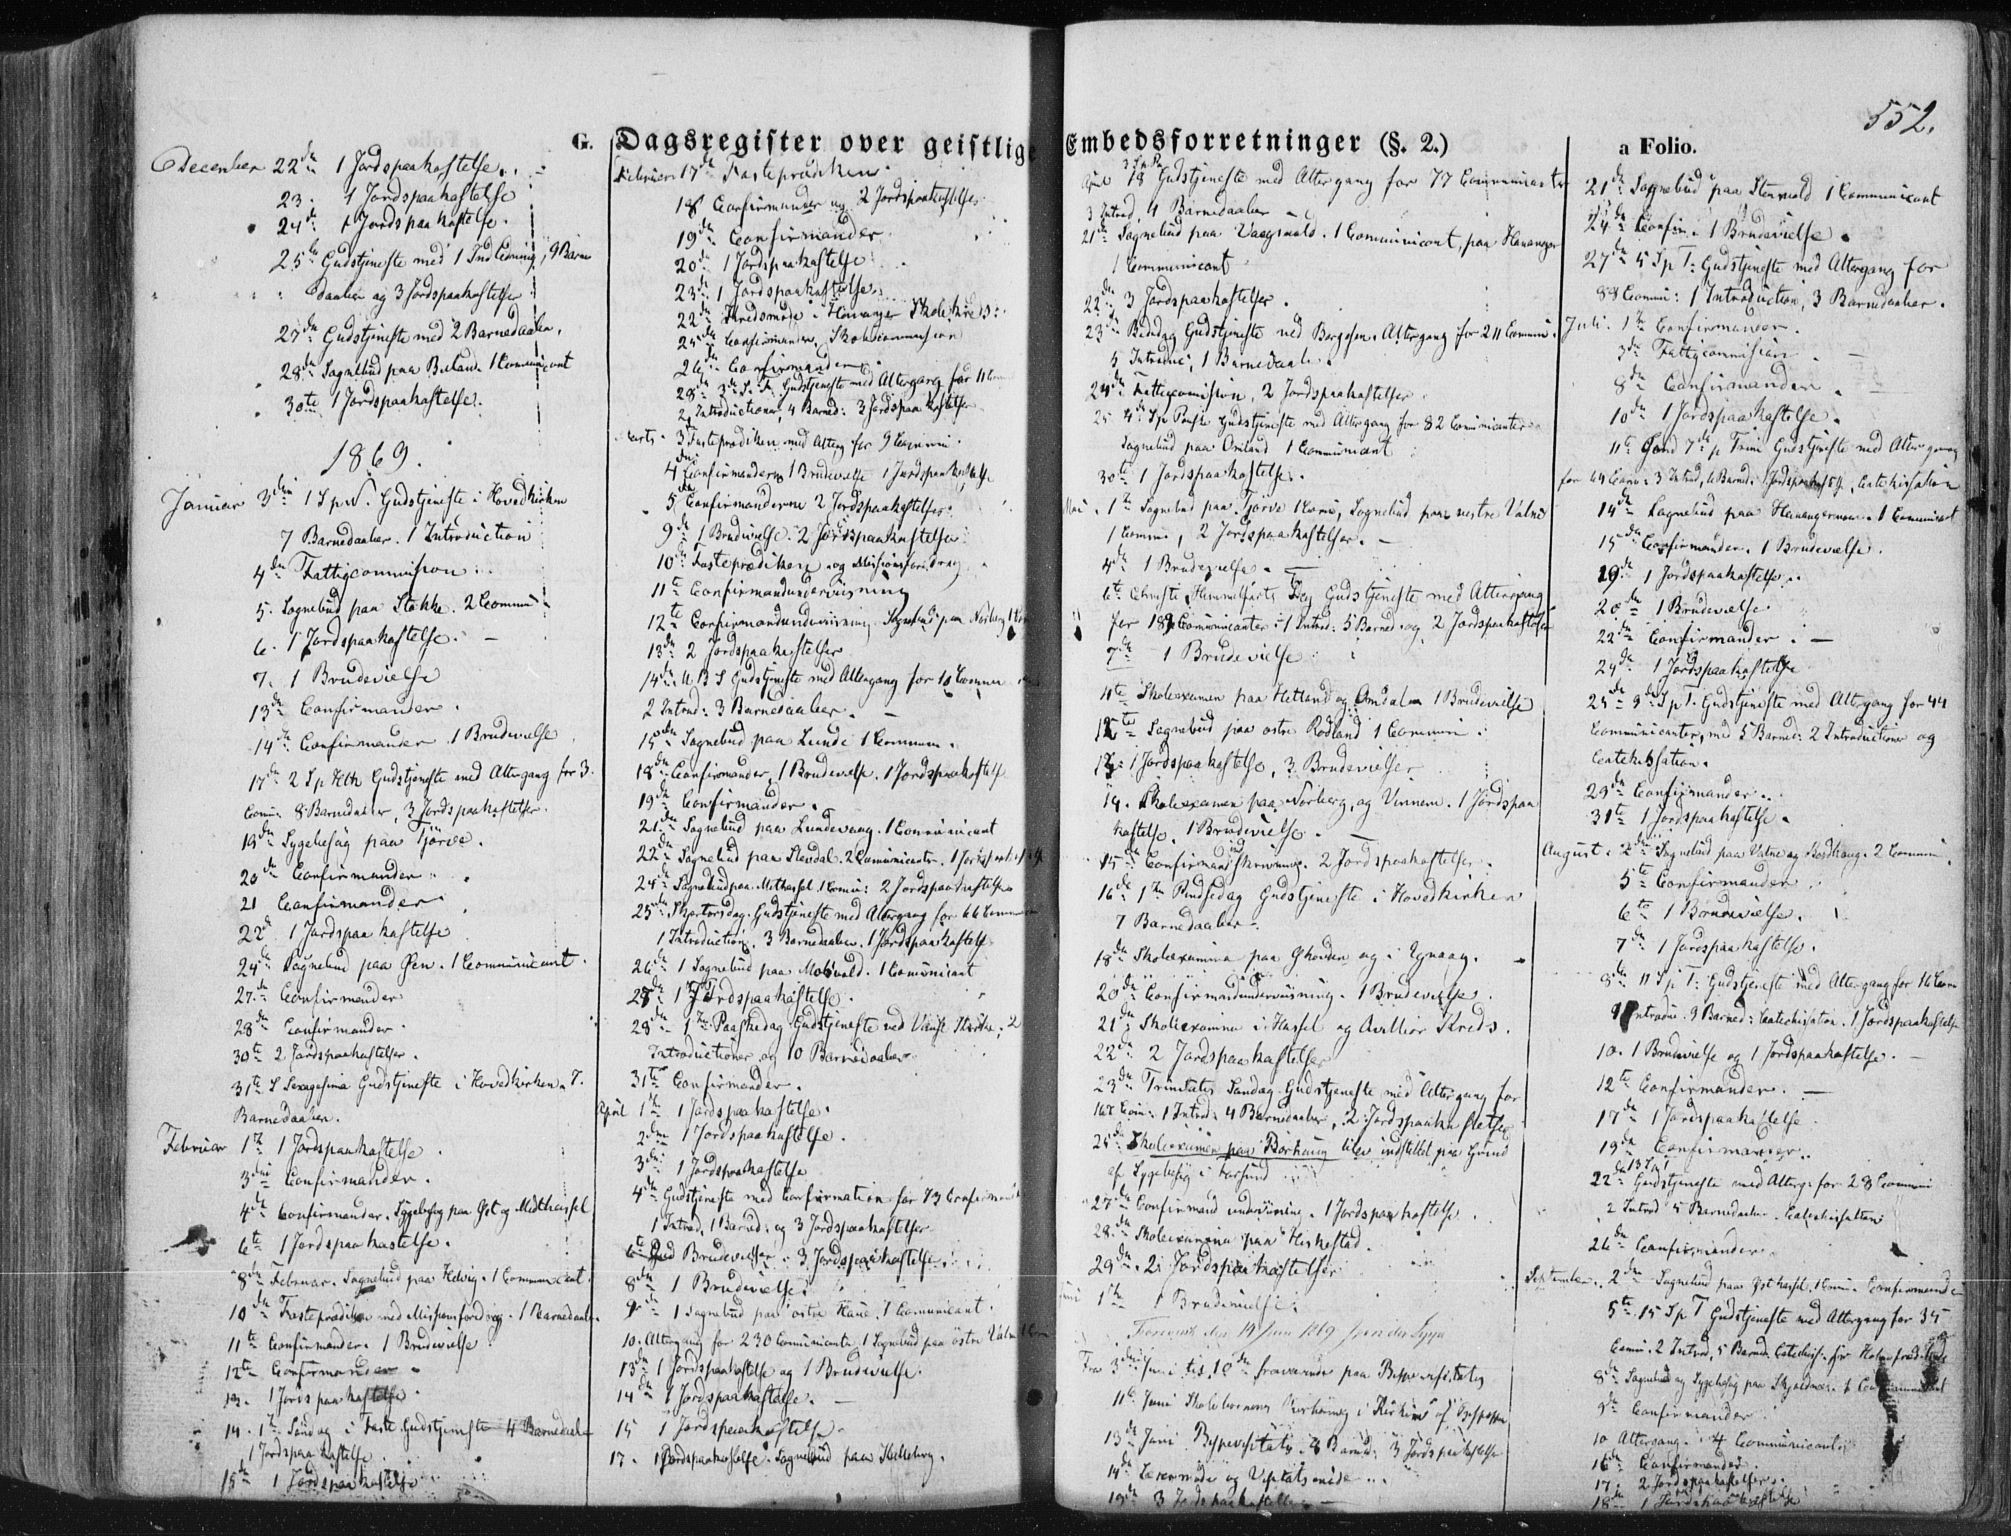 552.
G. Dagsregister over geistlige Embedsforretninger (§. 2.) a Folio.
December 22de 1 Jordspaakastelse.
23. 1 Jordspaakastelse
24de 1 Jordspaakastelse.
25de Gudstjeneste med 1 Indledning, 9 Barne
daaber og 3 Jordspaakastelser
27de Gudstjeneste med 2 Barnedaaber.
28de Sognebud paa 1 Communicant
30te 1 Jordspaakastelse.
1869.
Januar 3die 1 S p N. Gudstjeneste i Hovedkirken
7 Barnedaaber. 1 Introduction
4de Fattigcommission.
5. Sognebud paa Stokke. 2 Commun
6. 1 Jordspaakastelse.
7. 1 Brudevielse
13de Confirmander.
14de Confirmander 1 Brudevielse
17de 2 S p Gudstjeneste med Altergang for 3
Comm: 8 Barnedaaber, 3 Jordspaakastelser.
19de Sygebesøg paa Tjörve.
20de Confirmander
21 Confirmander
22de 1 Jordspaakastelse
24de Sognebud paa Øen. 1 Communicant.
27de Confirmander
28de Confirmander.
30te 2 Jordspaakastelser.
31te S Sexagesima Gudstjeneste i Hovedkirken. 7.
Barnedaaber.
Februar 1te 1 Jordspaakastelse.
3die Confirmander.
4de Confirmander. Sygebesøg paa Ost og Midthassel
6te 1 Jordspaakastelse.
8de Februar. Sognebud paa Helvig. 1 Communicant.
10de Fasteprædiken med Missionsforedrag. 1 Barnedaab.
11te Confirmander. 1 Brudevielse
12te Confirmander
13. 1 Jordspaakastelse.
14. 1te Søndag i Faste Gudstjeneste 4 Barnedaaber
1 Jordspaakastelse.
15de 1 Jordspaakastelse
Februar 17de Fasteprædiken
18 Confirmander og 2 Jordspaakastelser
19de Confirmander
20de 1 Jordspaakastelse
23de 1 Jordspaakastelse.
22de Kredsmøde i Skolekreds.
25de Confirmander, Skolecommission
26de Confirmander
28de Gudstjeneste med Altergang for 11 Com
2 Introductioner, 4 Barned: 3 Jordspaakastelser
Marts. 3 Fasteprædiken med Alterg for 9 Commun.
4de Confirmanderne 1 Brudevielse 1 Jordspaakastelse
5 Confirmanderne 2 Jordspaakastelser.
9de 1 Brudevielse. 2 Jordspaakastelser
10de Fasteprædiken og Missionsforedrag
11te Confirmandundervisning
12te Confirmandundervisning. Sognebud paa Norberg 1 Com
13de 2 Jordspaakastelser
14de Gudstjeneste med Altergang for 10 Commun
2 Introd: 3 Barnedaaber.
15de Sognebud paa Lunde 1 Commun.
18de Confirmander, 1 Brudevielse. 1 Jordspaakastelse
19de Confirmander.
21de Sognebud paa Lundevaag. 1 Communicant
22de Sognebud paa Slevdal. 2 Communicanter. 1 Jordspaakast
24de Sognebud paa Midthassel 1 Commun: 2 Jordspaakastelser
25de Skjertorsdag. Gudstjeneste med Altergang for 66 Commun
1 Introduction, 3 Barnedaaber. 1 Jordspaakastelse
26de 1 Sognebud paa 1 Communicant
27de 1 Jordspaakastelse.
28de 1te Paaskedag Gudstjeneste ved Vanse Kirke. 2
Introductioner og 10 Barnedaaber
31te Confirmander.
April 1te 1 Jordspaakastelse.
2den 1 Jordspaakastelse.
3die 1 Jordspaakastelse
4de Gudstjeneste med Confirmation for 73 Confirmand
1 Introd, 1 Barned: og 3 Jordspaakastelser
6te Brudevielser. 3 Jordspaakastelser.
8de 1 Brudevielse.
9de 1 Sognebud paa østre 1 Communicant.
10. Altergang for 230 Communicanter, 1 Sognebud paa østre Valne
13de 1 Jordspaakastelse og 1 Brudevielse.
14de 1 Jordspaakastelse.
15 1 Jordspaakastelse
17. 1 Jordspaakastelse. Sognebud paa
April 18 Gudstjeneste med Altergang for 77 Communicanter
3 Introd, 4 Barnedaaber
21de Sognebud paa Vaagsvold. 1 Communicant, paa Hananger
1 Communicant
22de 3 Jordspaakastelser.
23de Bededag Gudstjeneste ved Altergang for 211 Commun.
5 Introduc; 1 Barnedaab.
24de Fattigcommission, 2 Jordspaakastelser
25 4de S p Paaske Gudstjeneste med Altergang for 82 Communicanter
Sognebud paa Omland 1 Communicant
30te 1 Jordspaakastelse.
Mai. 1te Sognebud paa Tjorve 1 Comm, Sognebud paa vestre Valne
1 Comm., 2 Jordspaakastelser.
4de 1 Brudevielse.
6te Christi Himmelfarts Dag Gudstjeneste med Altergang
for Communicanter 1 Introd: 5 Barned. og 2 Jordspaakastelser
7de 1 Brudevielse
11te Skoleexamen paa Hetland og Omdal 1 Brudevielse
12te Sognebud paa østre Rødland 1 Commun.
13. 1 Jordspaakastelse, 3 Brudevielser
14. Skoleexamen paa Norberg, og Vinnem. 1 Jordspaa
kastelse, 1 Brudevielse.
15de Confirmandindskrivning. 2 Jordspaakastelser.
16de 1te Pindsedag Gudstjeneste i Hovedkirken
7 Barnedaaber.
18de Skoleexamina paa og i
20de Confirmandundervisning. 1 Brudevielse.
21de Skoleexamina i Hassel og Kreds.
22de 2 Jordspaakastelser
23de Trinitatis Søndag Gudstjeneste med Altergang for
167 Com: 1 Introd: 4 Barnedaaber, 2 Jordspaakastelser
25de Skoleexamen paa Borhaug blev indstillet paa Grund
af Sygebesøg i Farsund
27de Confirmandundervisning. 1 Jordspaakastelse.
28de Skoleexamina paa Huskestad.
29de 2 Jordspaakastelser
Juni 1te 1 Brudevielse.
Foreviist den 14 Juni 1869
Fra 3die Juni til 10de fraværende paa Bispevisitats
11te Juni Skolebørnenes i Kirken af Bispen
13de Juni Bispevisitats. 8 Barned: 3 Jordspaakastelser
14de Lærermøde og
19de 3 Jordspaakastelser
21de Sognebud paa Stenvold 1 Communicant
24de Confir. 1 Brudevielse.
27de 5 S p T: Gudstjeneste med Altergang for
88 Commun: 1 Introduction, 3 Barnedaaber.
Juli. 1te Confirmander.
3die Fattigcommission.
8de Confirmander
10de 1 Jordspaakastelse.
11te Søndag 7de p Trini Gudstjeneste med Altergang
for 44 Comm: 3 Introd, 4 Barned: 1 Jordspaakastelse, Catekisation
14de Sognebud paa 1 Communicant
15de Confirmander. 1 Brudevielse.
19de 1 Jordspaakastelse.
20de 1 Brudevielse.
22de Confirmander.
24de 1 Jordspaakastelse
25de 9de S p T. Gudstjeneste med Altergang for 44
Communicanter, med 5 Barned: 2 Introductioner og
Catekisation.
29de Confirmander.
31te 1 Jordspaakastelse.
August. 2den Sognebud paa Valne og Bordhaug. 2 Commun.
5te Confirmander
6te 1 Brudevielse.
7de 1 Jordspaakastelse.
8de 11 S p T: Gudstjeneste med Altergang for 16 Comm
Introdu. 9 Barned: Catekisation. 1 Jordspaakastelse
10. 1 Brudevielse og 1 Jordspaakastelse.
12te Confirmander.
17de 1 Jordspaakastelse
19de Confirmander.
22de 13 S p T Gudstjeneste med Alterg. for 28 Commun
2 Introd 5 Barnedaaber. Catekisation
26de Confirmander.
September. 2den Sognebud paa Østhassel. 1 Comm. Confirmander
5te 15 S p T Gudstjeneste med Altergang for 35
Comm. 2 Introd, 5 Barned. Catekis. for
8de Sognebud og Sygebesøg paa 1 Communicant
9de Confirmander
10 Altergang. 4 Communicanter
16de Confirmander.
17. 2 Jordspaakastelser.
18de 1 Jordspaakastelse